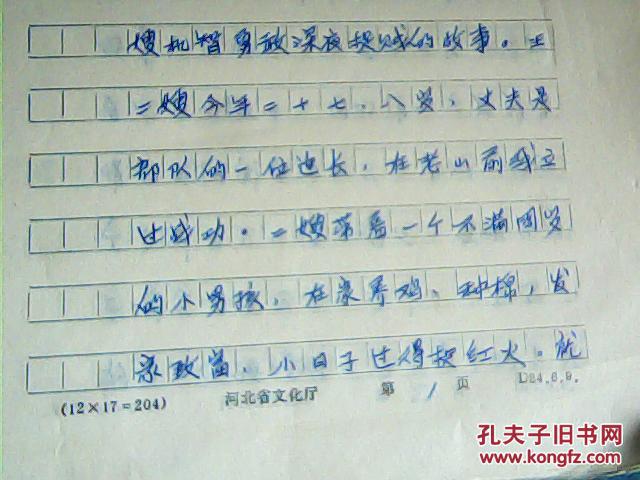 嫂机智勇敢深夜捉贼的故事。王
二嫂今年二十七、八岁,丈夫是
部队的一位连长,在老山前线立
过战功。二嫂带着一个不满周岁
的小男孩,在家养鸡、种棉,发
家致富,小日子过得挺红火。就
(12×17=204) 河北省文化厅 第 1 页 D84.6.9.
孔夫子旧书网
www.kongfz.com